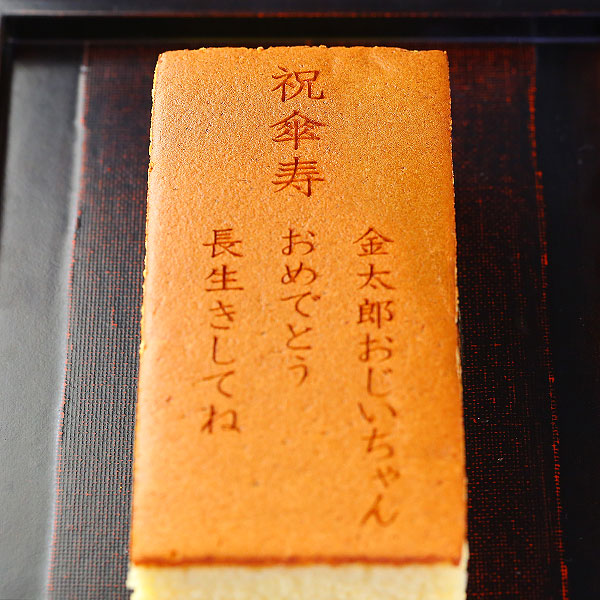 祝傘寿
金太郎おじいちゃん
おめでとう
長生きしてね